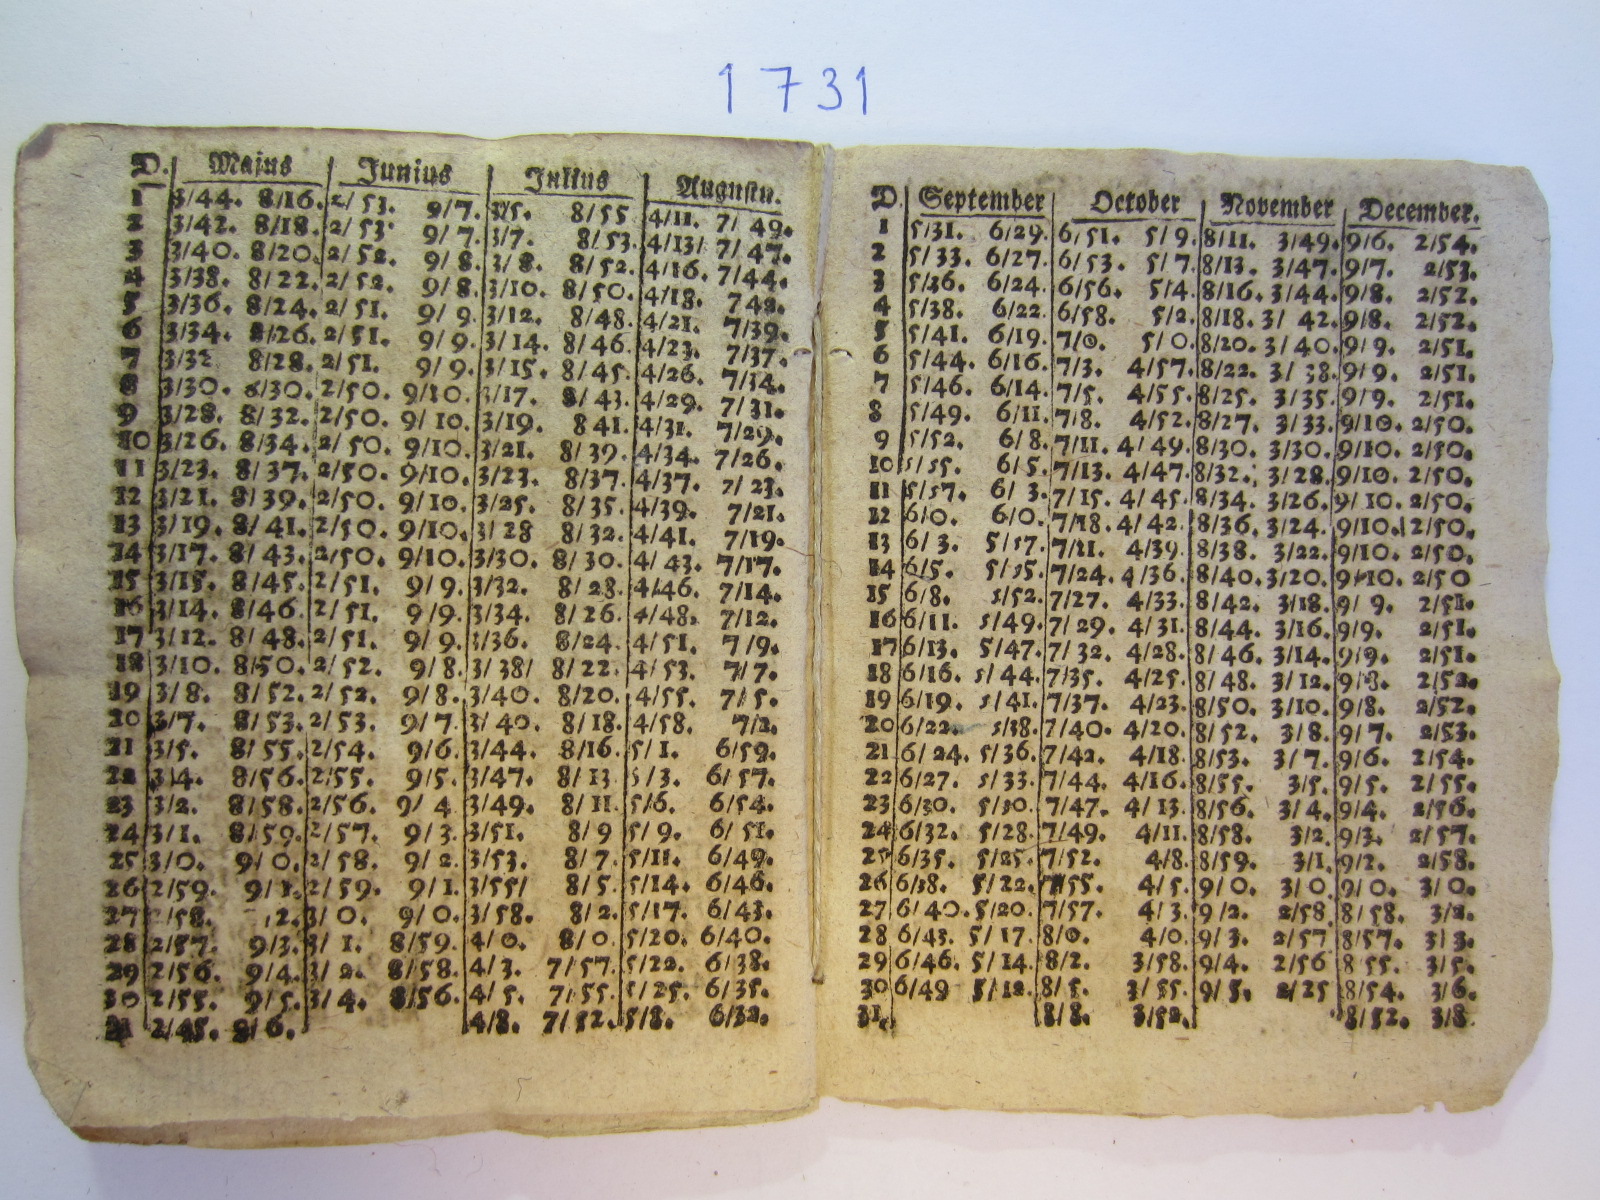 1731
D. Majus Junius Julius Augustu.
1 3/44. 8/16. 2/53. 9/7. 3/5. 8/55 4/11. 7/49.
2 3/42. 8/18. 2/53. 9/7. 3/7. 8/53. 4/13/ 7/47.
3 3/40. 8/20. 2/52. 9/8. 3/8. 8/52. 4/16. 7/44.
4 3/38. 8/22. 2/52. 9/8. 3/10. 8/50. 4/18. 742.
5 3/36. 8/24. 2/51. 9/9. 3/12. 8/48. 4/21. 7/39.
6 3/34. 8/26. 2/51. 9/9. 3/14. 8/46. 4/23. 7/37.
7 3/32 8/28. 2/51. 9/9. 3/15. 8/45. 4/26. 7/34.
8 3/30. 8/30. 2/50. 9/10. 3/17. 8/43. 4/29. 7/31.
9 3/28. 8/32. 2/50. 9/10. 3/19. 841. 4/31. 7/29.
10 3/26. 8/34. 2/50. 9/10. 3/21. 8/39. 4/34. 7/26.
11 3/23. 8/37. 2/50. 9/10. 3/23. 8/37. 4/37. 7/23.
12 3/21. 8/39. 2/50. 9/10. 3/25. 8/35. 4/39. 7/21.
13 3/19. 8/41. 2/50. 9/10. 3/28 8/32. 4/41. 7/19.
14 3/17. 8/43. 2/50. 9/10. 3/30. 8/30. 4/43. 7/17.
15 3/15. 8/45. 2/51. 9/9. 3/32. 8/28. 4/46. 7/14.
16 3/14. 8/46. 2/51. 9/9. 3/34. 8/26. 4/48. 7/12.
17 3/12. 8/48. 2/51. 9/9. 3/36. 8/24. 4/51. 7/9.
18 3/10. 8/50. 2/52. 9/8. 3/38/ 8/22. 4/53. 7/7.
19 3/8. 8/52. 2/52. 9/8. 3/40. 8/20. 4/55. 7/5.
20 3/7. 8/53. 2/53. 9/7. 3/40. 8/18. 4/58. 7/2.
21 3/5. 8/55. 2/54. 9/6. 3/44. 8/16. 5/1. 6/59.
22 3/4. 8/56. 2/55. 9/5. 3/47. 8/13 5/3. 6/57.
23 3/2. 8/58. 2/56. 9/4 3/49. 8/11. 5/6. 6/54.
24 3/1. 8/59. 2/57. 9/3. 3/51. 8/9 5/9. 6/51.
25 3/0. 9/0. 2/58. 9/2. 3/53. 8/7. 5/11. 6/49.
26 2/59. 9/1. 2/59. 9/1. 3/55/ 8/5. 5/14. 6/46.
27 2/58. 2. 3/0. 9/0. 3/58. 8/2. 5/17. 6/43.
28 2/57. 9/3. 3/1. 8/59. 4/0. 8/0. 5/20. 6/40.
29 2/56. 9/4. 3/2. 8/58. 4/3. 7/57. 5/22. 6/38.
30 2/55. 9/5. 3/4. 8/56. 4/5. 7/55. 5/25. 6/35.
31 2/45. 9/6. 4/8. 7/52. 5/8. 6/32.
D. September October November December.
1 5/31. 6/29. 6/51. 5/9. 8/11. 3/49. 9/6. 2/54.
2 5/33. 6/27. 6/53. 5/7. 8/13. 3/47. 9/7. 2/53.
3 5/36. 6/24. 6/56. 5/4. 8/16. 3/44. 9/8. 2/52.
4 5/38. 6/22. 6/58. 5/2. 8/18. 3/42. 9/8. 2/52.
5 5/41. 6/19. 7/0. 5/0. 8/20. 3/40. 9/9. 2/51.
6 5/44. 6/16. 7/3. 4/57. 8/22. 3/38. 9/9. 2/51.
7 5/46. 6/14. 7/5. 4/55. 8/25. 3/35. 9/9. 2/51.
8 5/49. 6/11. 7/8. 4/52. 8/27. 3/33. 9/10. 2/50.
9 5/52. 6/8. 7/11. 4/49. 8/30. 3/30. 9/10. 2/50.
10 5/55. 6/5. 7/13. 4/47. 8/32. 3/28. 9/10. 2/50.
11 5/57. 6/3. 7/15. 4/45. 8/34. 3/26. 9/10. 2/50.
12 6/0. 6/0. 7/18. 4/42. 8/36. 3/24. 9/10. 2/50.
13 6/3. 5/57. 7/21. 4/39. 8/38. 3/22. 9/10. 2/50.
14 6/5. 5/55. 7/24. 4/36. 8/40. 3/20. 9/10. 2/50
15 6/8. 5/52. 7/27. 4/33. 8/42. 3/18. 9/9. 2/51.
16 6/11. 5/49. 7/29. 4/31. 8/44. 3/16. 9/9. 2/51.
17 6/13. 5/47. 7/32. 4/28. 8/46. 3/14. 9/9. 2/51.
18 6/16. 5/44. 7/35. 4/25. 8/48. 3/12. 9/8. 2/52.
19 6/19. 5/41. 7/37. 4/23. 8/50. 3/10. 9/8. 2/52.
20 6/22. 5/38. 7/40. 4/20. 8/52. 3/8. 9/7. 2/53.
21 6/24. 5/36. 7/42. 4/18. 8/53. 3/7. 9/6. 2/54.
22 6/27. 5/33. 7/44. 4/16. 8/55. 3/5. 9/5. 2/55.
23 6/30. 5/30. 7/47. 4/13. 8/56. 3/4. 9/4. 2/56.
24 6/32. 5/28. 7/49. 4/11. 8/58. 3/2. 9/3. 2/57.
25 6/35. 5/25. 7/52. 4/8. 8/59. 3/1. 9/2. 2/58.
26 6/38. 5/22. 7/55. 4/5. 9/0. 3/0. 9/0. 3/0.
27 6/40. 5/20. 7/57. 4/3. 9/2. 2/58. 8/58. 3/2.
28 6/43. 5/17. 8/0. 4/0. 9/3. 2/57 8/57. 3/3.
29 6/46. 5/14. 8/2. 3/58. 9/4. 2/56 8 55. 3/5.
30 6/49 5/12. 8/5. 3/55. 9/5. 2/25 8/54. 3/6.
31. 8/8. 3/52. 8/52. 3/8.